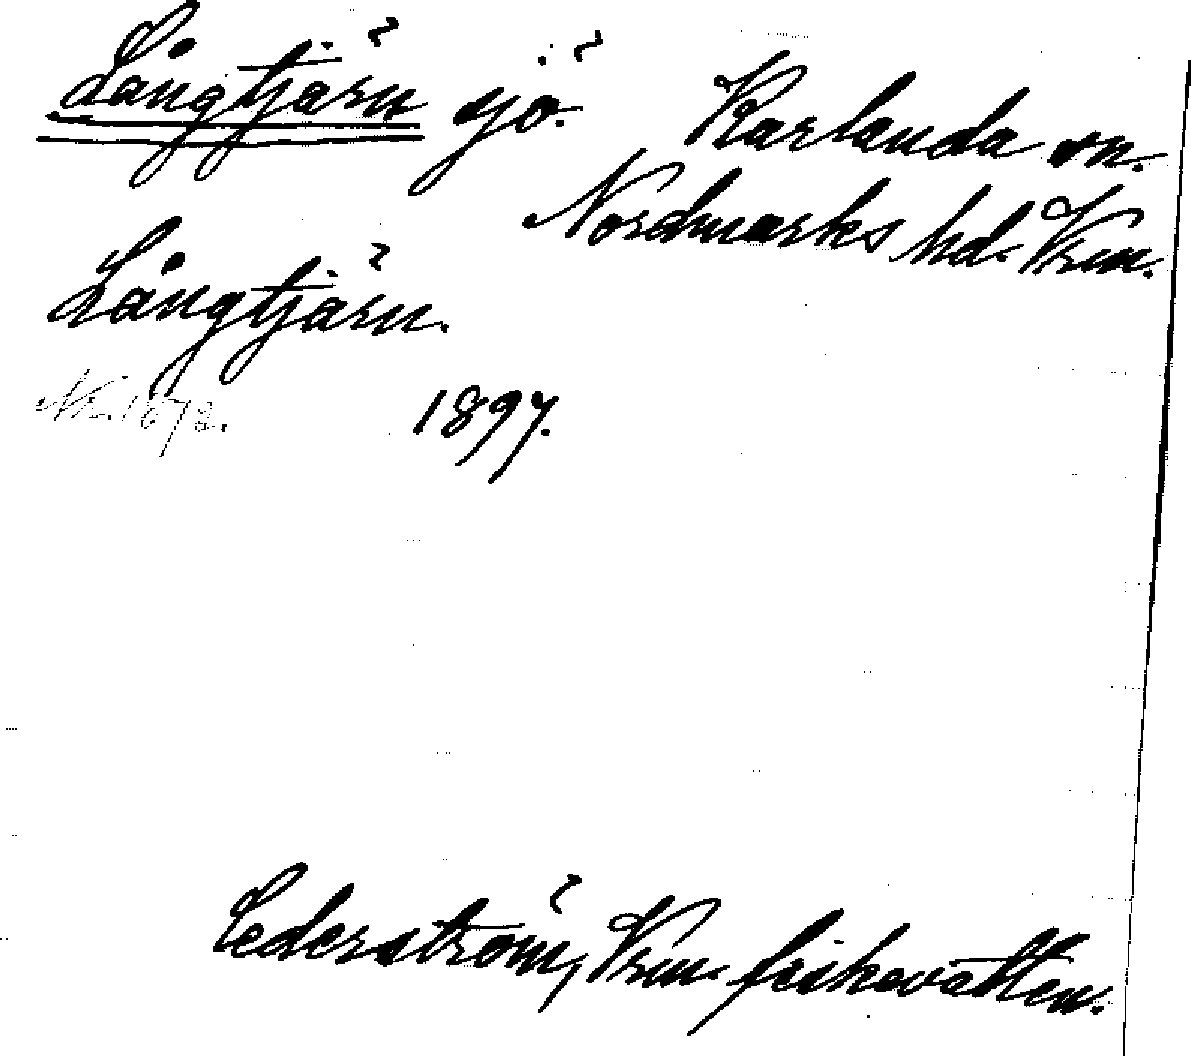 Långtjärn sjö. Karlanda sn.
Nordmarks hd. Vrm.
Långtjärn.
Nr. 1678.
1897.
Cederström, Vrm. fiskevatten.